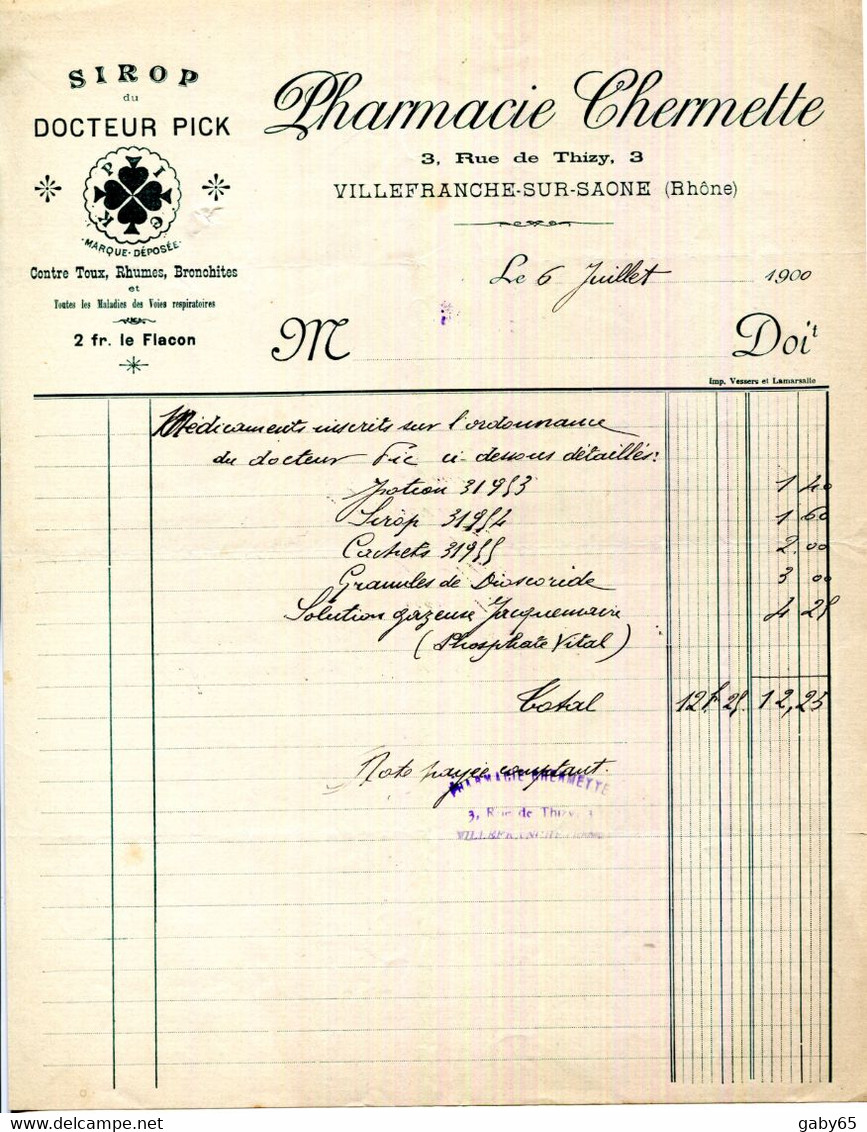 SIROP
du
DOCTEUR PICK
PICK
MARQUE-DÉPOSÉE
Contre Toux, Rhumes, Bronchites
et
Toutes les Maladies des Voies respiratoires
2 fr. le Flacon
Pharmacie Chermette
3, Rue de Thizy, 3
VILLEFRANCHE-SUR-SAONE (Rhône)
Le 6 Juillet 1900
M Doit
Imp. Vessers et Lamarsalle
Médicaments inscrits sur l'ordonnance
du docteur Pic ci dessous détaillés:
Potion 31953 1 40
Sirop 31954 1 60
Cachets 31955 2.00
Granules de Dioscoride 3 00
Solution gazeuse Jacquemaire 4 25
(Phosphate Vital)
Total 12f 25. 12,25
Note payée comptant.
PHARMACIE CHERMETTE
3, Rue de Thizy, 3
VILLEFRANCHE (RHONE)
delcampe.net
gaby65